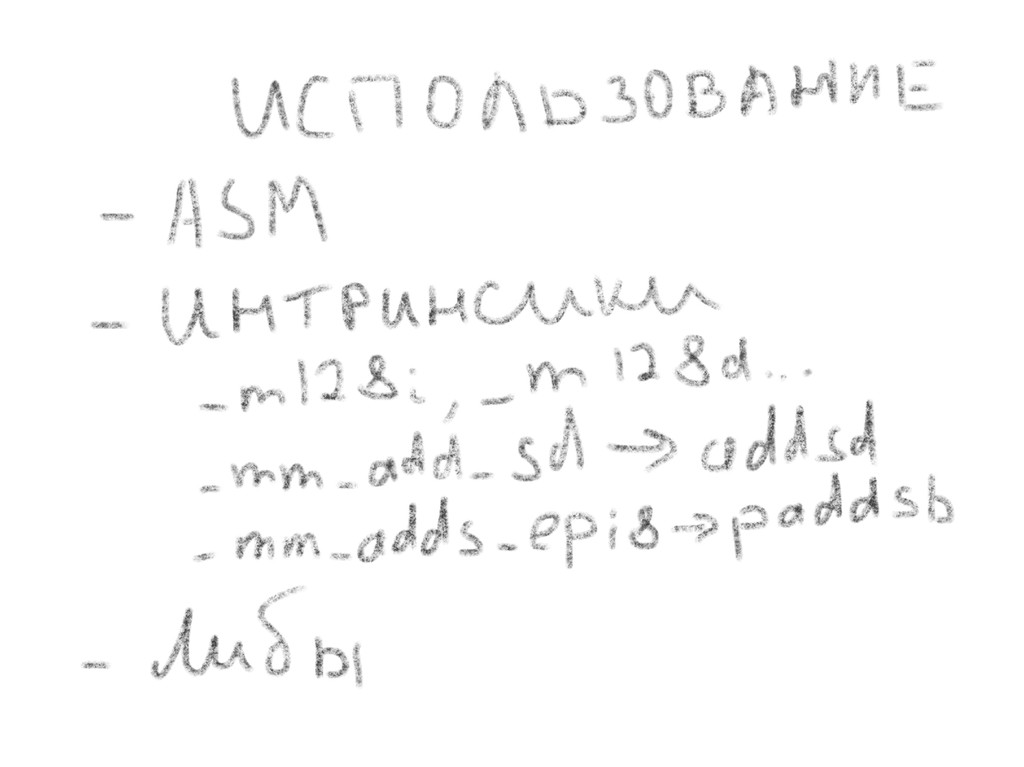 ИСПОЛЬЗОВАНИЕ
- ASM
- ИНТРИНСИКИ
_m128i, _m128d...
_mm_add_sd → addsd
_mm_adds_epi8 → paddsb
- Либы